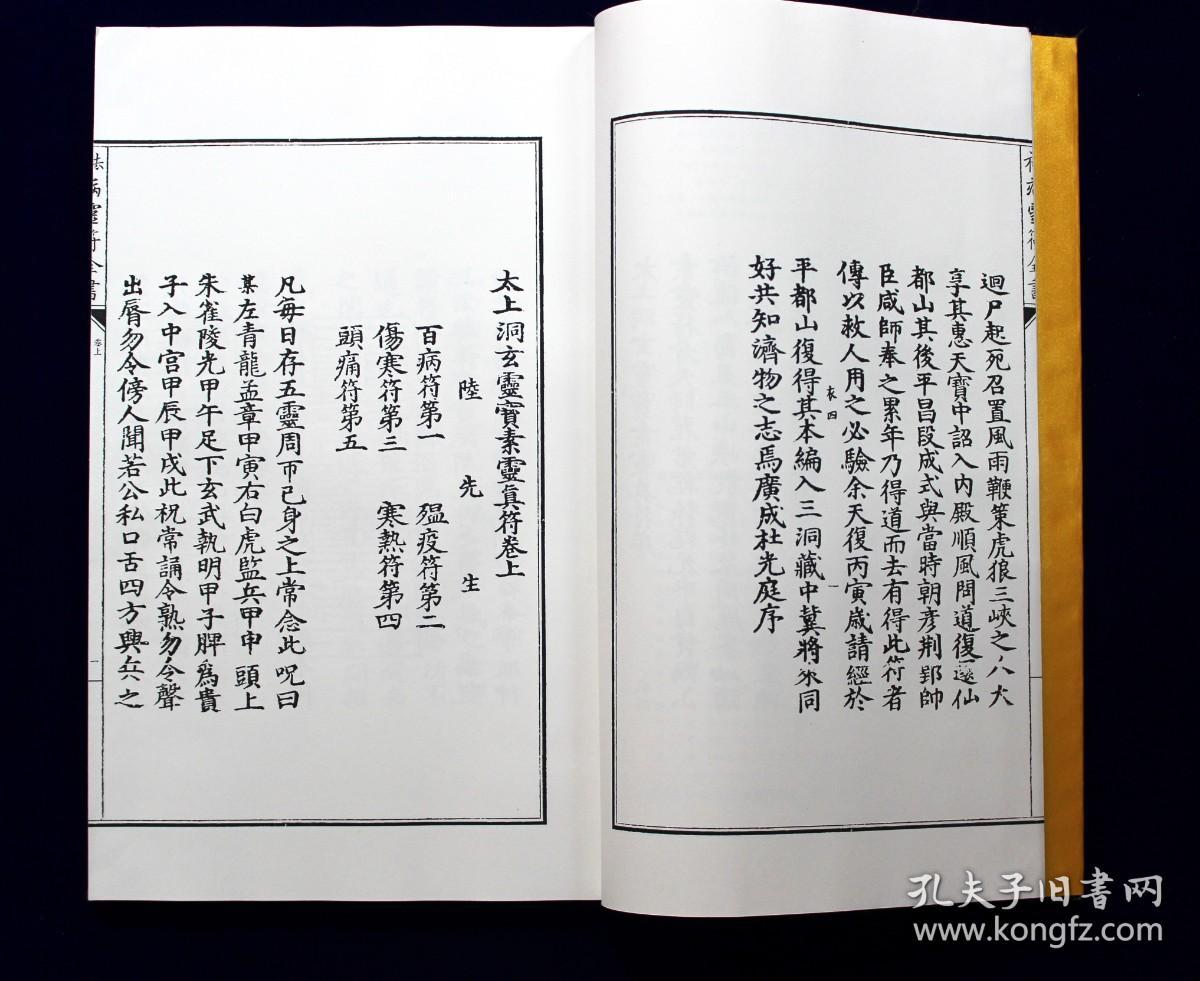 迴尸起死召置風雨鞭策虎狼三峽之人大
享其惠天寶中詔入内殿順風問道復還仙
都山其後平昌段成式與當時朝彦荆郢帥
臣咸師奉之累年乃得道而去有得此符者
傳以救人用之必驗余天復丙寅歲請經於
衣四
一
平都山復得其本編入三洞藏中冀將來同
好共知濟物之志焉廣成杜光庭序
病靈符全書
太上洞玄靈寶素靈真符卷上
陸先生
百病符第一 殟疫符第二
傷寒符第三 寒熱符第四
頭痛符第五
凡每日存五靈周帀已身之上常念此呪曰
某左青龍孟章甲寅右白虎監兵甲申頭上
朱雀陵光甲午足下玄武執明甲子脾爲貴
子入中宫甲辰甲戌此祝常誦令熟勿令聲
出脣勿令傍人聞若公私口舌四方興兵之
病靈符全書
卷上
一
孔夫子旧书网
www.kongfz.com